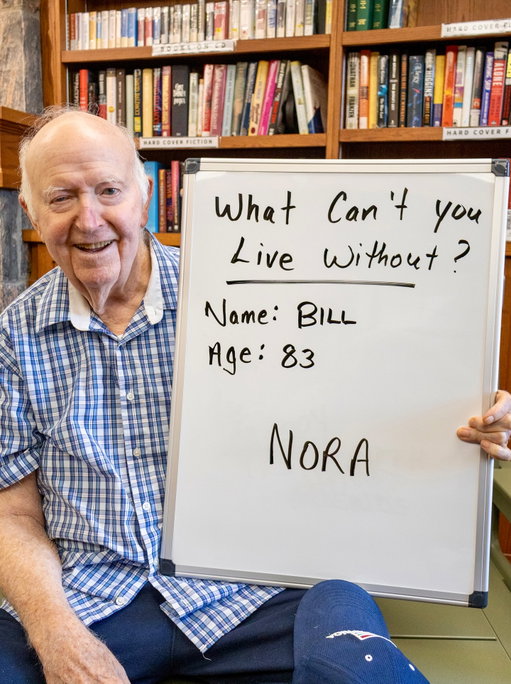 BOOKS ON CD
HARD COVER FICTION
HARD COVER FICTION
HARD COVER FICTION
What Can't you
Live Without?
Name: BILL
Age: 83
NORA